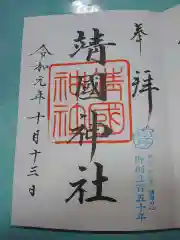 奉拝
靖國神社
靖國
神社
令和元年十月十三日
御創立百五十年